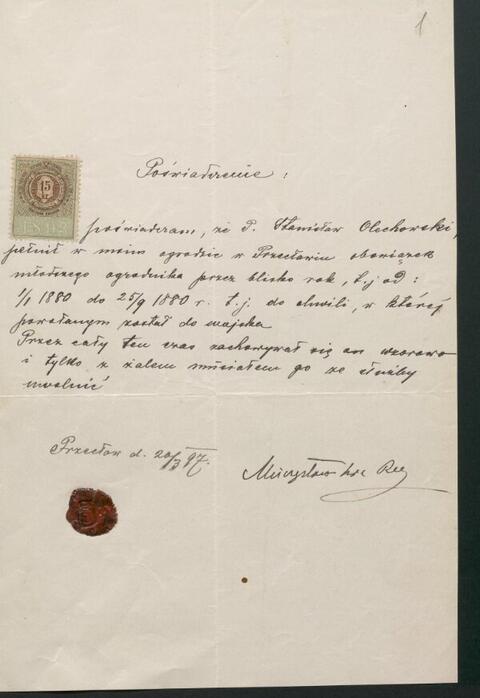 1
15
kr
1893
Poświadczenie :
poświadczam, że P. Stanisław Olechowski,
pełnił w moim ogrodzie w Przecławiu obowiązek
młodszego ogrodnika przez blisko rok, t.j od :
1/1 1880 do 25/9 1880 r. t.j. do chwili, w której
powołanym został do wojska
Przez cały ten czas zachowywał się on wzorowo
i tylko z żalem musiałem go ze służby
uwolnić
Przecław d. 20/3 97.
Mieczysław hr. Rey